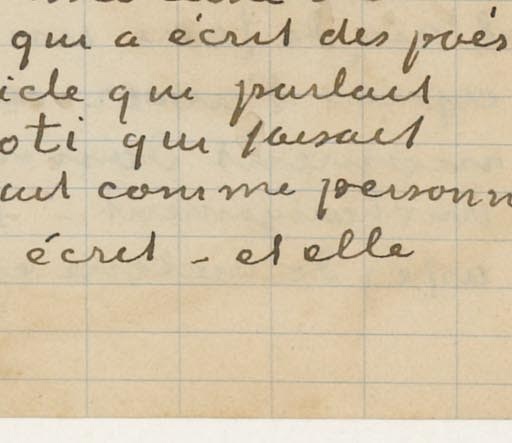 qui a écrit des poés
icle qui parlait
oti qui faisait
ait comme personn
écrit - et elle